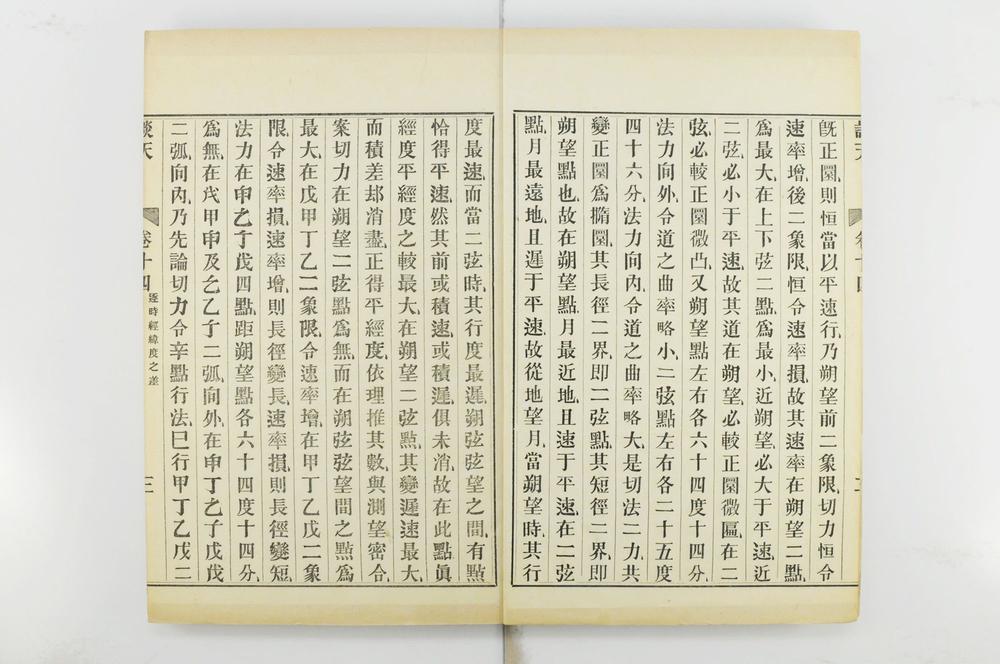 談天
卷十四
二
旣正圜則恒當以平速行乃朔望前二象限切力恒令
速率增後二象限恒令速率損故其速率在朔望二點
爲最大在上下弦二點爲最小近朔望必大于平速近
二弦必小于平速故其道在朔望必較正圜微匾在二
弦必較正圜微凸又朔望點左右各六十四度十四分
法力向外令道之曲率略小二弦點左右各二十五度
四十六分法力向內令道之曲率略大是切法二力共
變正圜爲撱圜其長徑二界即二弦點其短徑二界即
朔望點也故在朔望點月最近地且速于平速在二弦
點月最遠地且遲于平速故從地望月當朔望時其行
度最速而當二弦時其行度最遲朔弦弦望之間有點
恰得平速然其前或積速或積遲俱未消故在此點眞
經度平經度之較最大在朔望二弦點其變遲速最大
而積差却消盡正得平經度依理推其數與測望密合
案切力在朔望二弦點爲無而在朔弦弦望間之點爲
最大在戊甲丁乙二象限令速率增在甲丁乙戊二象
限令速率損速率增則長徑變長速率損則長徑變短
法力在申乙子戊四點距朔望點各六十四度十四分
爲無在戊甲申及乞乙子二弧向外在申丁乞子戊戊
二弧向內乃先論切力令辛點行法巳行甲丁乙戊二
談天
卷十四
逐時經緯度之差
三